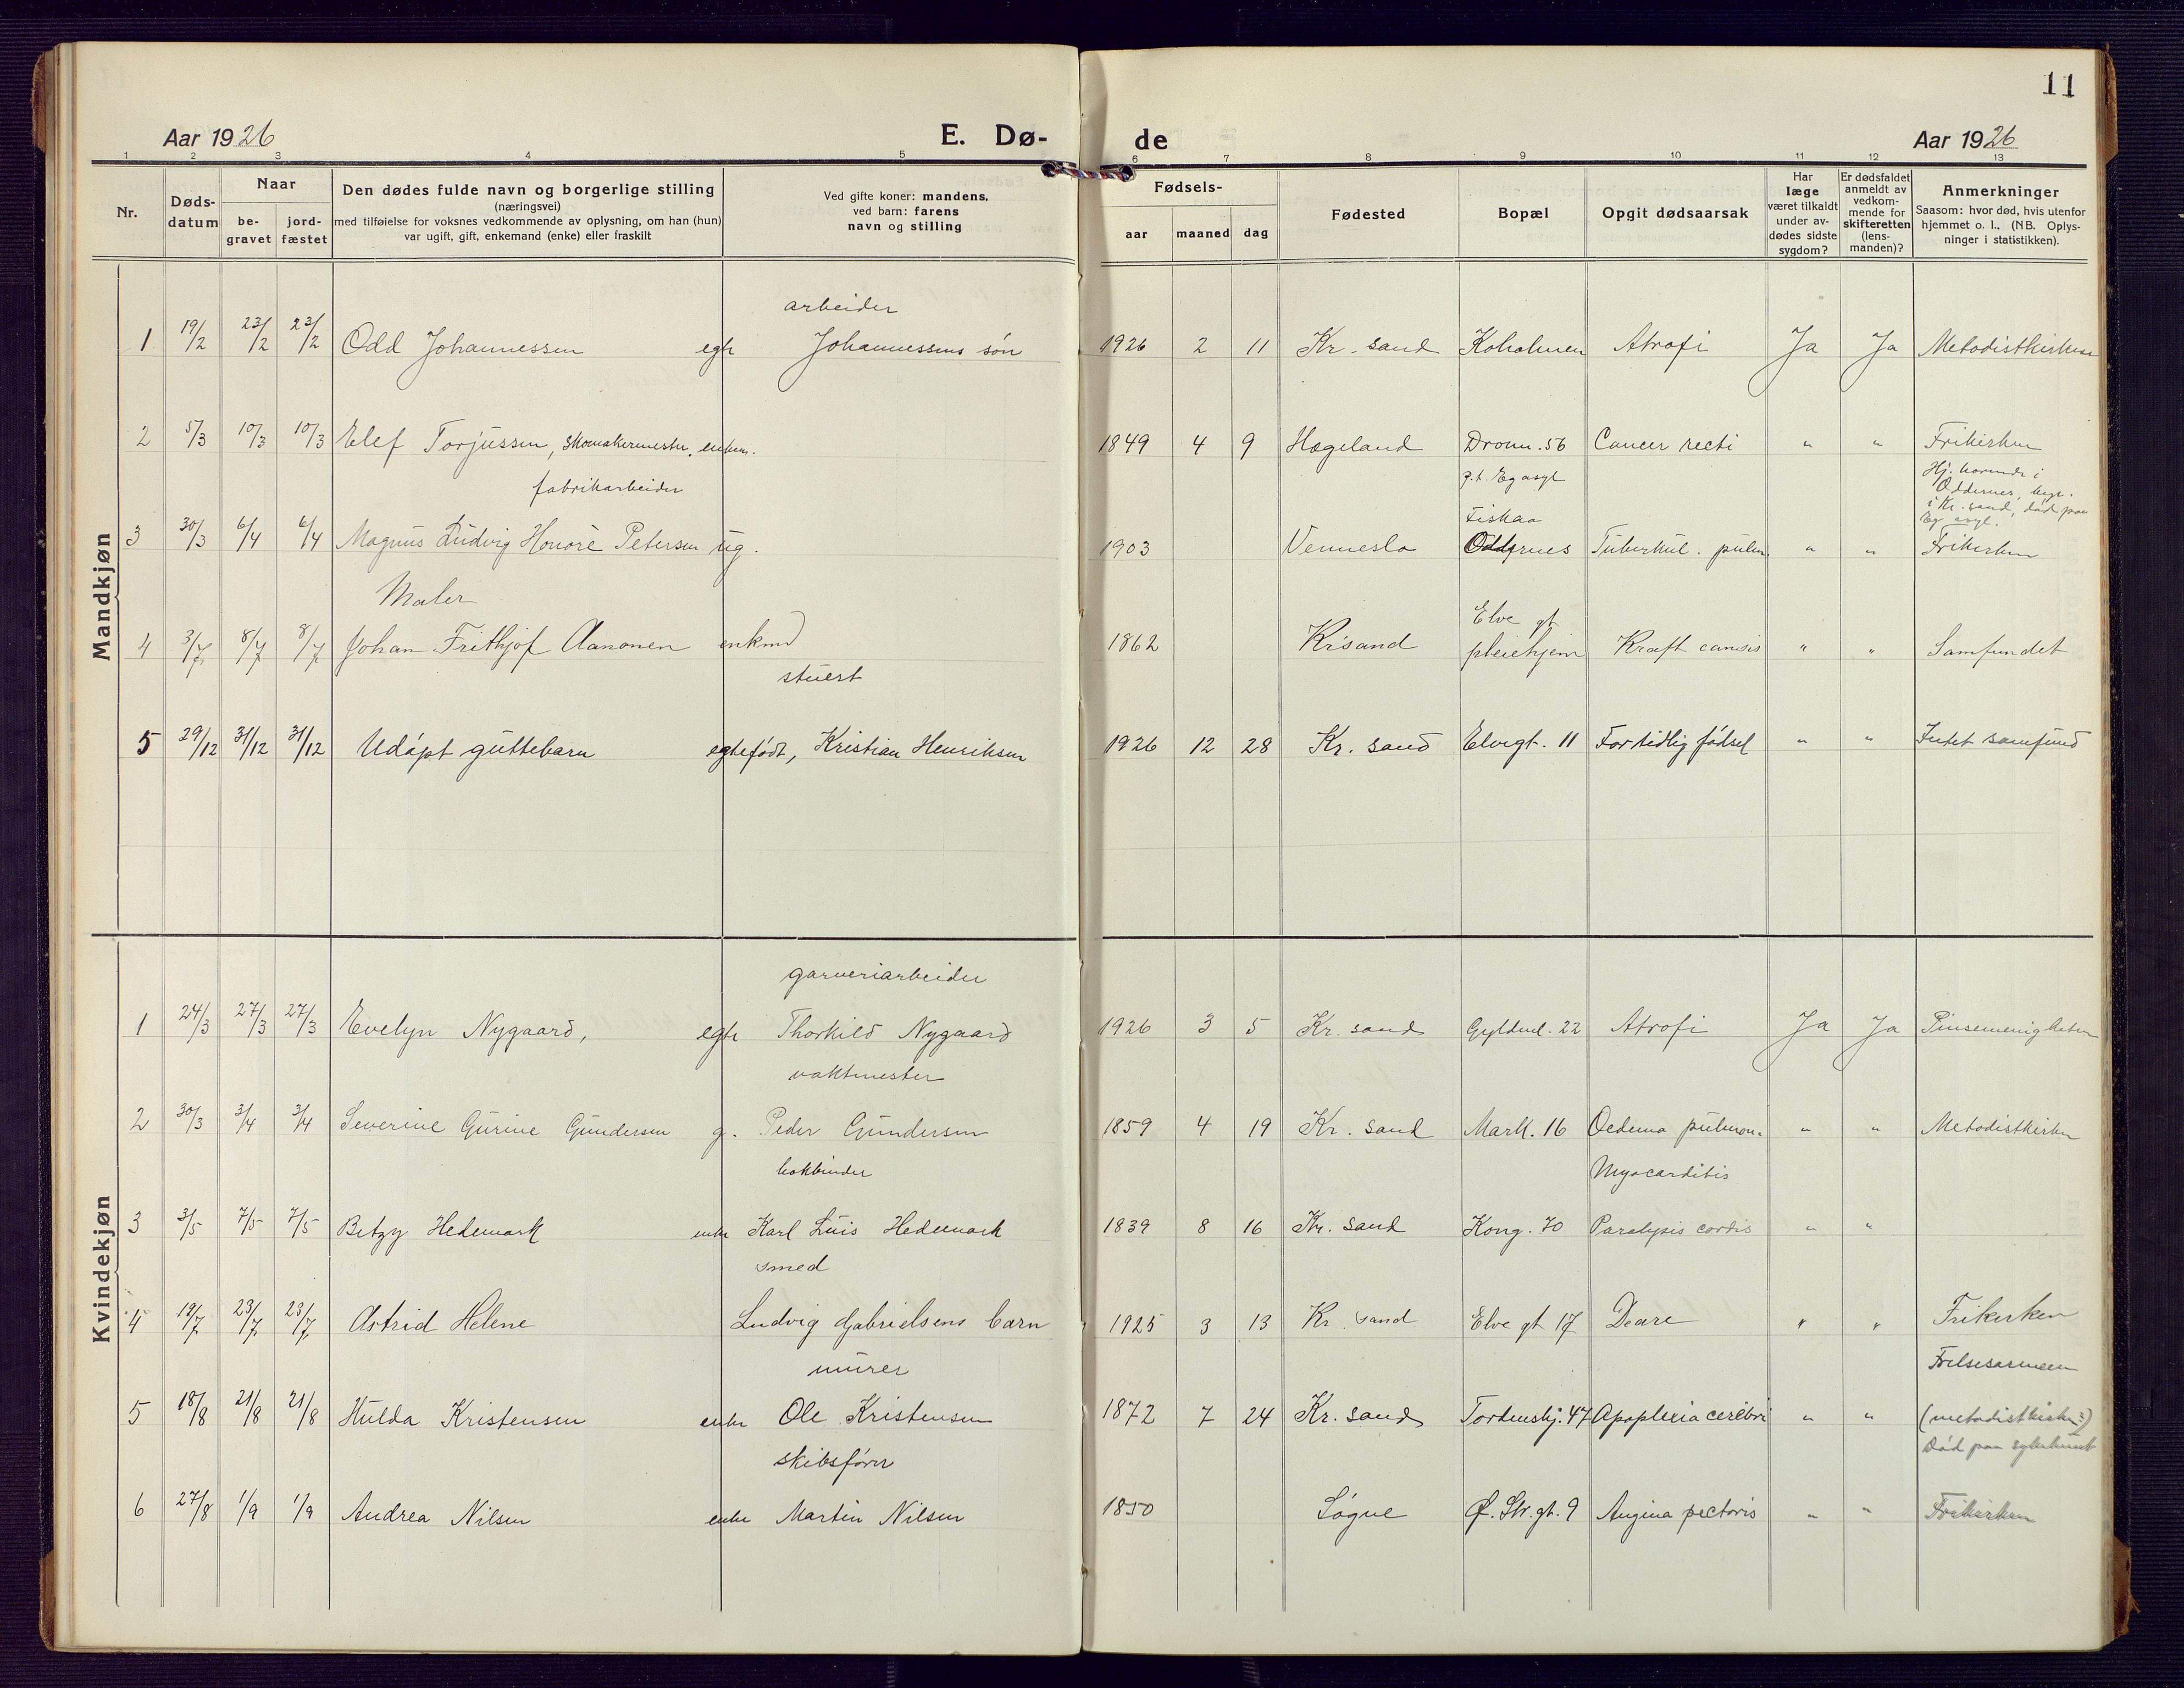 11
Aar 1926 E. Dø- de Aar 1926
1 2 3 4 5 6 7 8 9 10 11 12 13
Nr.
Døds-
datum
Naar
be-
gravet
jord-
fæstet
Den dødes fulde navn og borgerlige stilling
(næringsvei)
med tilføielse for voksnes vedkommende av oplysning, om han (hun)
var ugift, gift, enkemand (enke) eller fraskilt
Ved gifte koner: mandens,
ved barn: farens
navn og stilling
Fødsels-
aar maaned dag
Fødested
Bopæl
Opgit dødsaarsak
Har
læge
været tilkaldt
under av-
dødes sidste
sygdom?
Er dødsfaldet
anmeldt av
vedkom-
mende for
skifteretten
(lens-
manden)?
Anmerkninger
Saasom: hvor død, hvis utenfor
hjemmet o. l., (NB. Oplys-
ninger i statistikken).
Mandkjøn
arbeider
1 19/2 23/2 23/2 Odd Johannessen egte Johannessens søn 1926 2 11 Kr. sand Koholmen Atrofi Ja Ja Metodistkirken
2 5/3 10/3 10/3 Elef Torjussen, skomakermester, enkem. 1849 4 9 Hægeland Dronn. 56 Cancer recti " " Frikirken
fabrikarbeider
p.t. Eg asyl
Hj. hørende i
Oddernes, begr.
i Kr. sand, død paa
Eg asyl.
Fiskaa
3 30/3 6/4 6/4 Magnus Ludvig Honorè Petersen ug. 1903 Vennesla Oddernes Tuberkul. pulm. " " Frikirken
Maler
Elve gt
4 3/7 8/7 8/7 Johan Frithjof Aanonen enkmd 1862 Krsand pleiehjem Kræft " " Samfundet
stuert
5 29/12 31/12 31/12 Udøpt guttebarn egtefødt, Kristian Henriksen 1926 12 28 Kr. sand Elvegt. 11 For tidlig fødsel " " Intet samfund
Kvindekjøn
garveriarbeider
1 24/3 27/3 27/3 Evelyn Nygaard, egte Thorkild Nygaard 1926 3 5 Kr. sand Gyldenl. 22 Atrofi Ja Ja Pinsemenigheten
vaktmester
2 30/3 3/4 3/4 Severine Gurine Gundersen g. Peder Gundersen 1859 4 19 Kr. sand Mark. 16 Oedema pulmon. " " Metodistkirken
bokbinder
Myocarditis
3 3/5 7/5 7/5 Betzy Hedemark enke Karl Luis Hedemark 1839 8 16 Kr. sand Kong. 70 Paralysis cordis " "
smed
4 19/7 23/7 23/7 Astrid Helene Ludvig Gabrielsens barn 1925 3 13 Kr. sand Elve gt 17 Deare " " Frikirken
murer
Frelsesarmeen
5 18/8 21/8 21/8 Hulda Kristensen enke Ole Kristensen 1872 7 24 Kr. sand Tordenskj. 47 Apoplexia cerebri " " (metodistkirke?)
Død paa sykehuset
skibsfører
6 27/8 1/9 1/9 Andrea Nilsen enke Martin Nilsen 1850 Søgne Ø. Str. gt. 9 Angina pectoris " " Frikirken